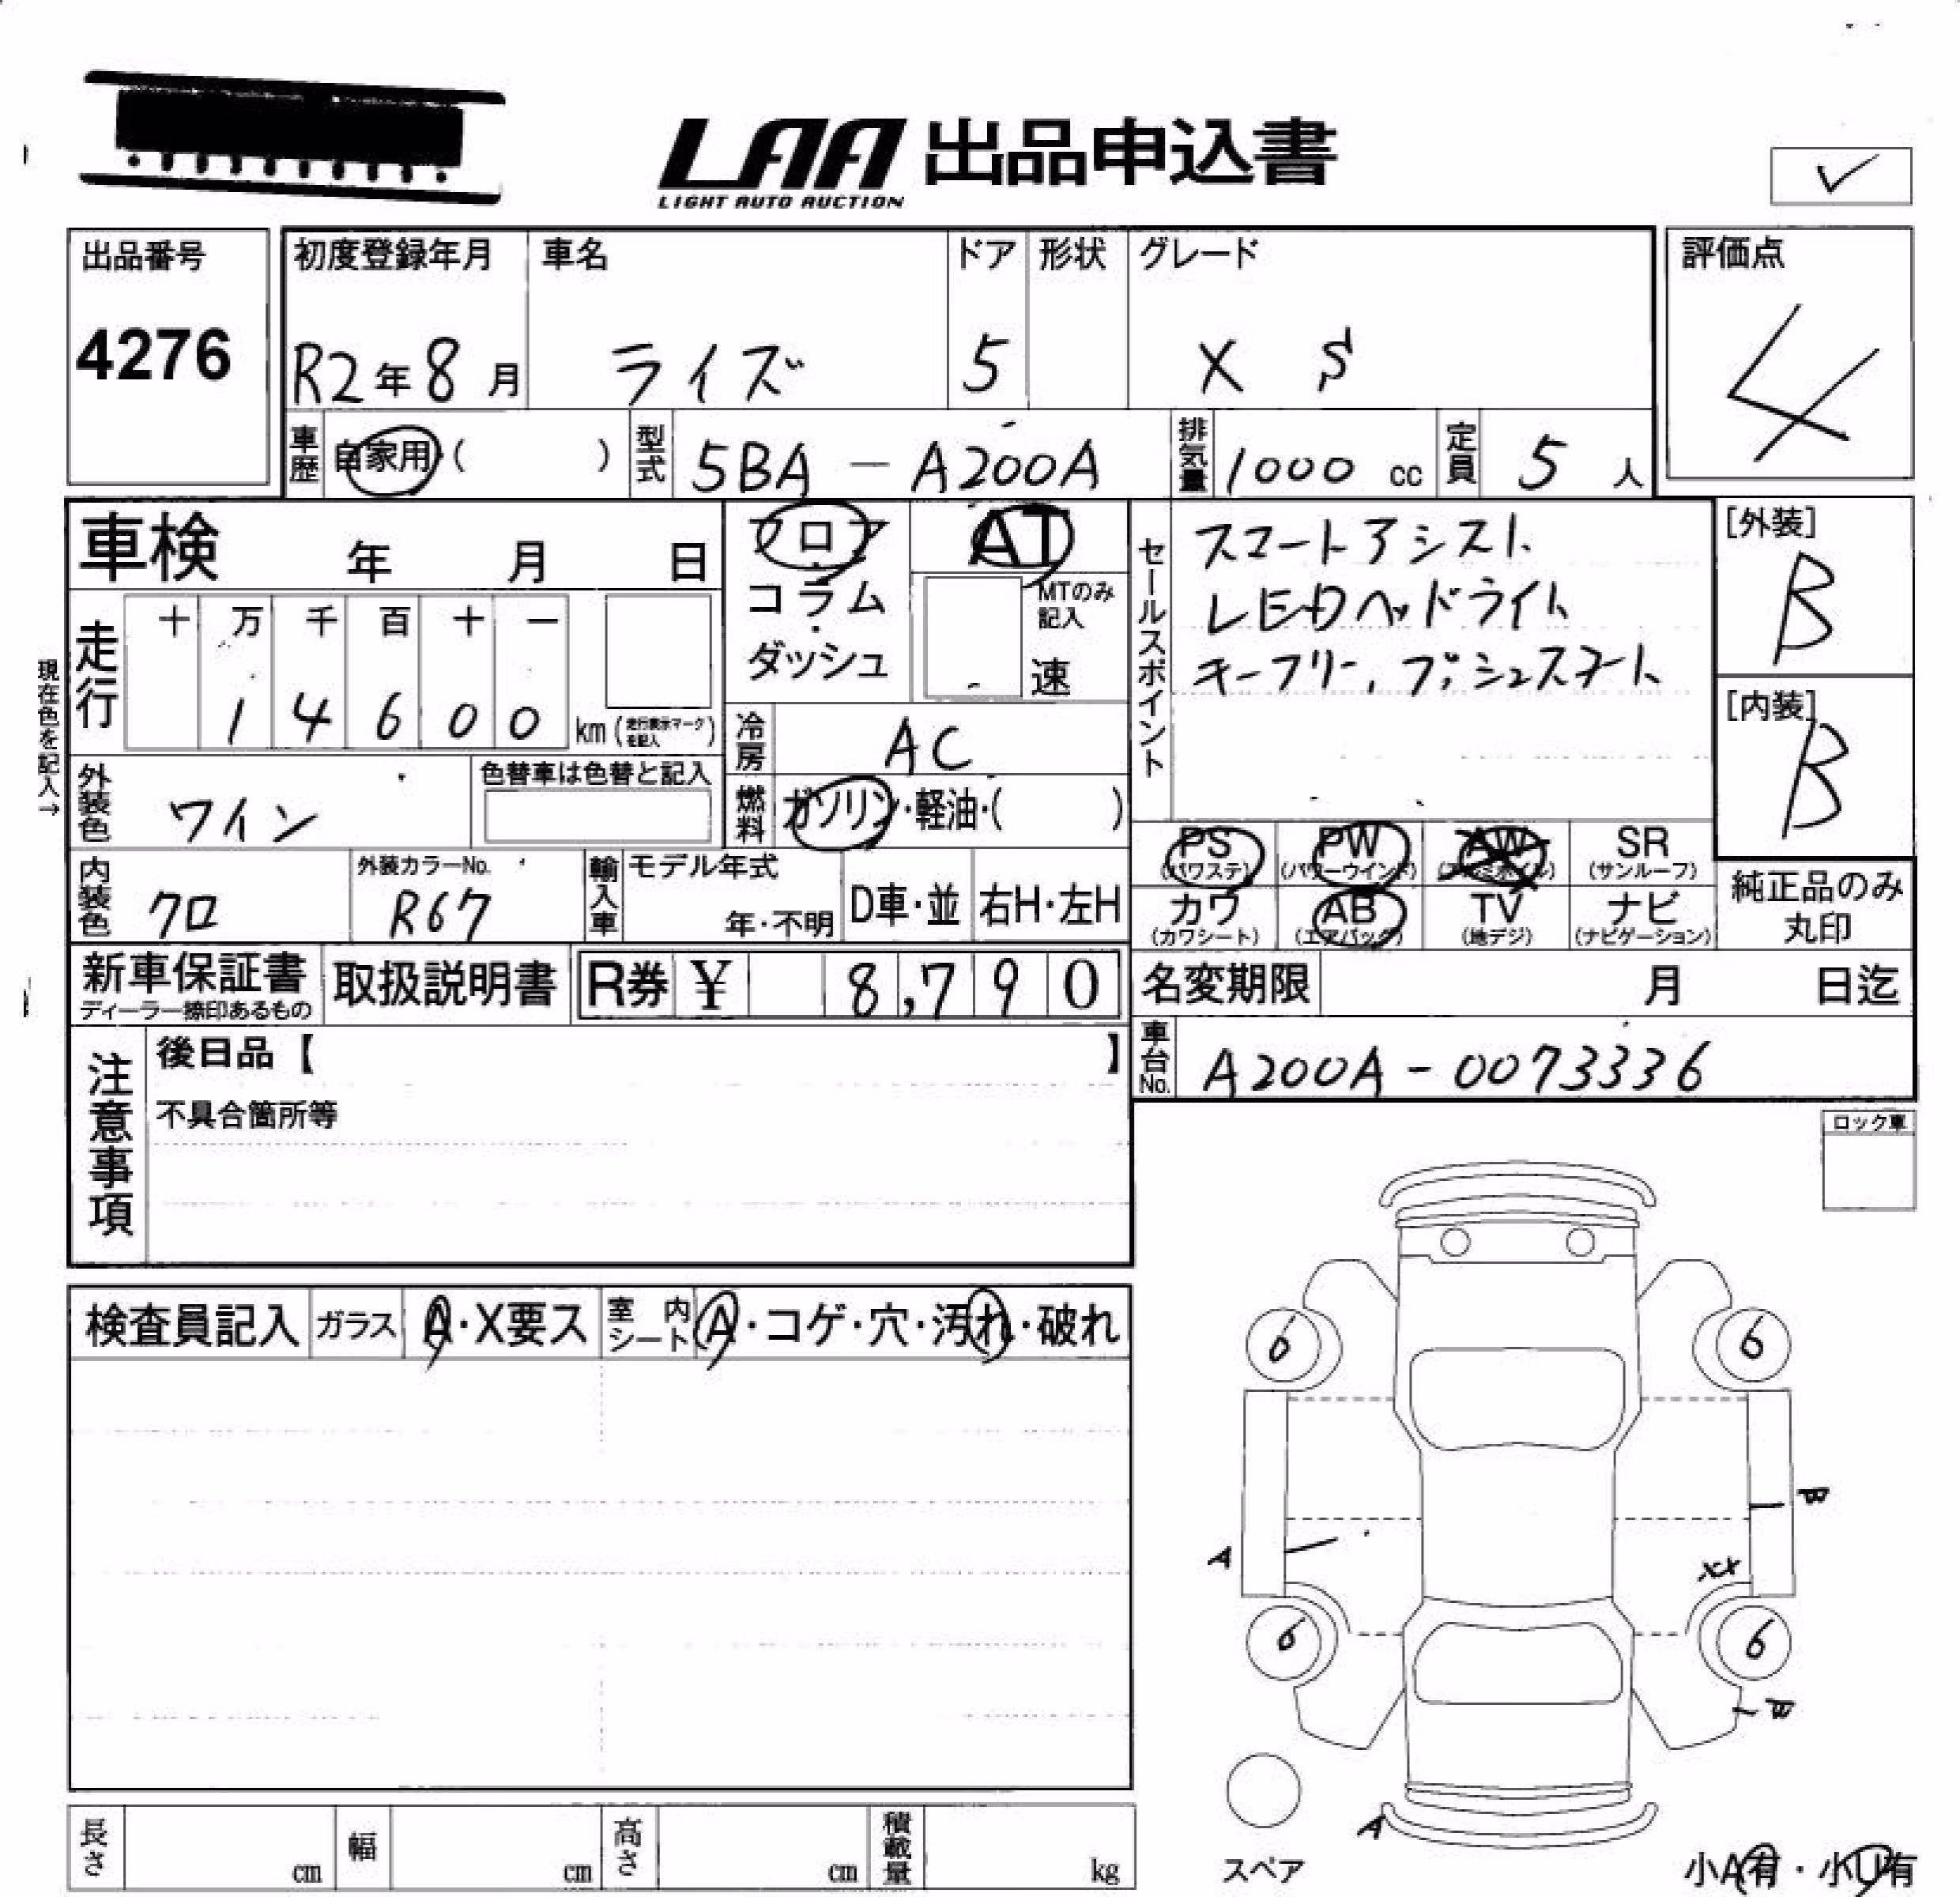 LAA 出品申込書
LIGHT AUTO AUCTION
✓
出品番号
4276
初度登録年月
R2年8月
車名
ライズ
ドア
5
形状
グレード
X S
評価点
4
車歴 自家用・( )
型式 5BA-A200A
排気量 1000 cc
定員 5 人
車検 年 月 日
フロア
コラム
・
ダッシュ
AT
MTのみ
記入
速
走行
十 万 千 百 十 一
1 4 6 0 0 km (走行表示マークを記入)
現在色を記入→
冷房 AC
外装色 ワイン
色替車は色替と記入
燃料 ガソリン・軽油・( )
内装色 クロ
外装カラーNo.
R67
輸入車
モデル年式
年・不明
D車・並
右H・左H
セールスポイント
スマートアシスト
LEDヘッドライト
キーフリー,プッシュスタート
[外装]
B
[内装]
B
PS
(パワステ)
PW
(パワーウインド)
AW
(アルミホイル)
SR
(サンルーフ)
カワ
(カワシート)
AB
(エアバッグ)
TV
(地デジ)
ナビ
(ナビゲーション)
純正品のみ
丸印
新車保証書
ディーラー捺印あるもの
取扱説明書
R券 ¥ 8,790
名変期限 月 日迄
車台No. A200A-0073336
注意事項
後日品【 】
不具合箇所等
ロック車
検査員記入
ガラス A・X要ス
室内シート A・コゲ・穴・汚れ・破れ
6
6
B
A
XX
6
6
B
A
スペア
小A有・小U有
長さ cm
幅 cm
高さ cm
積載量 kg